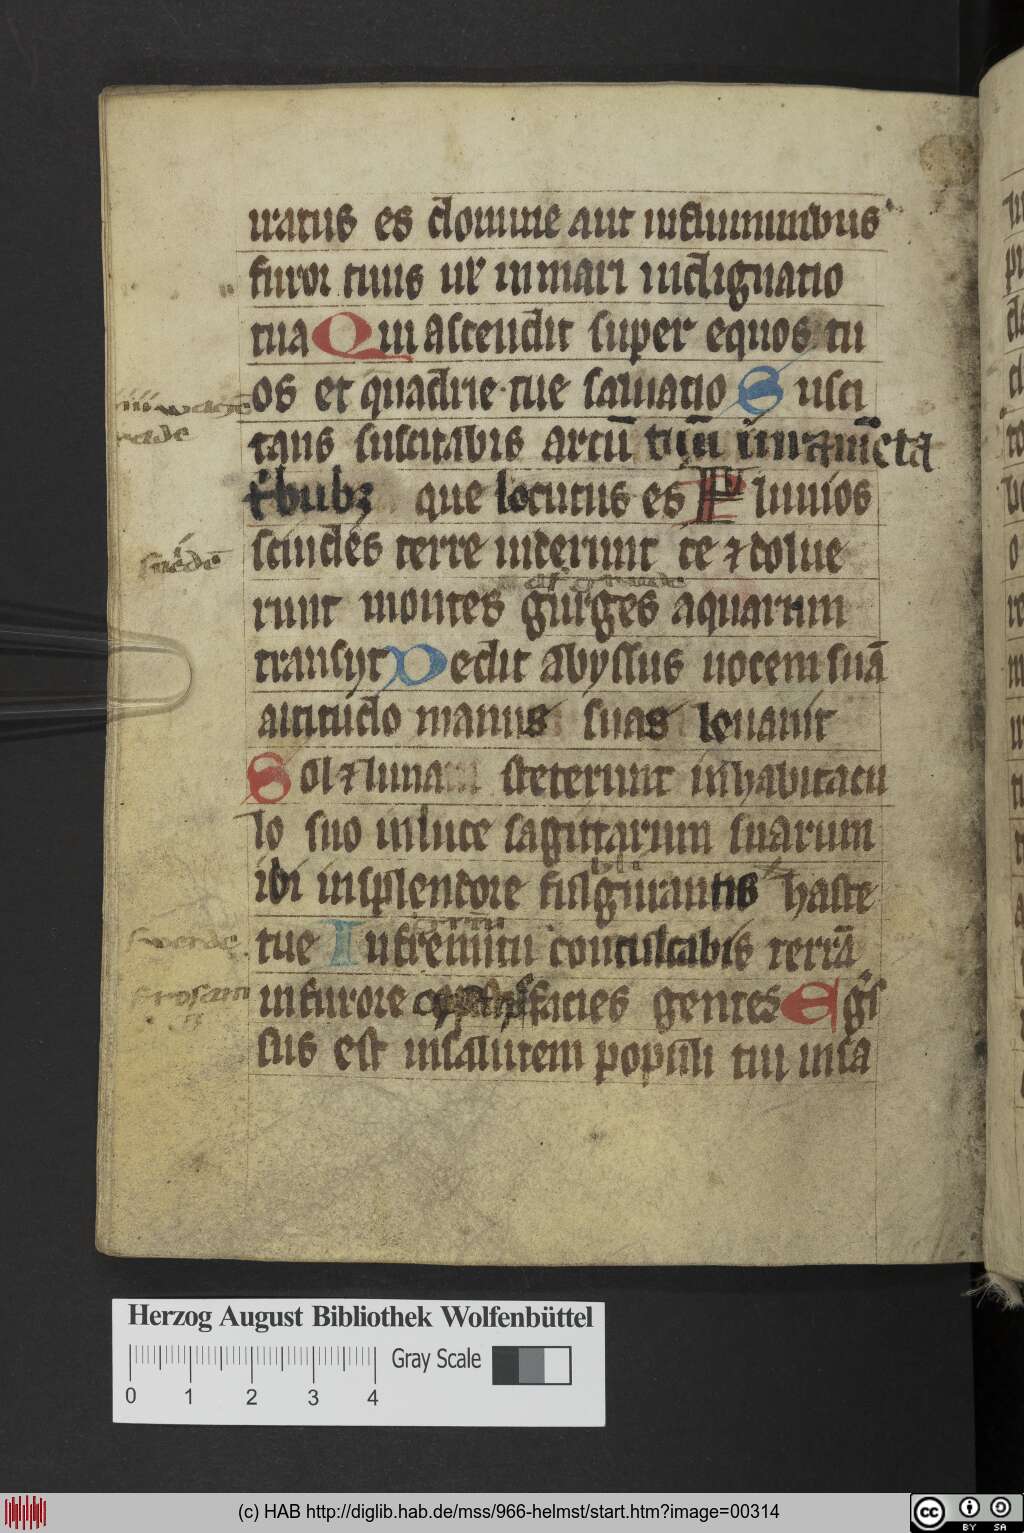 iratus es domine aut influminibus
furor tuus ur̄ inmari indignatio
tua Qui ascendit super equos tu
os et quadrie tue saluatio Susci
tans suscitabis arcū tuū iuram̄eta
t̄bubꝫ que locutus es Fluuios
scindes terre uiderunt te ⁊ dolue
runt montes gurges aquarum
transijt Dedit abyssus uocem suā
altitudo manus suas leuauit
Sol ⁊ luna steterunt inhabitacu
lo suo inluce sagittarum suarum
ibi insplendore fulgurantis haste
tue Infremitu conculcabis terrā
infurore facies gentes Egr̄s
sus est insalutem populi tui insa
Herzog August Bibliothek Wolfenbüttel
Gray Scale
0 1 2 3 4
(c) HAB http://diglib.hab.de/mss/966-helmst/start.htm?image=00314
cc BY SA